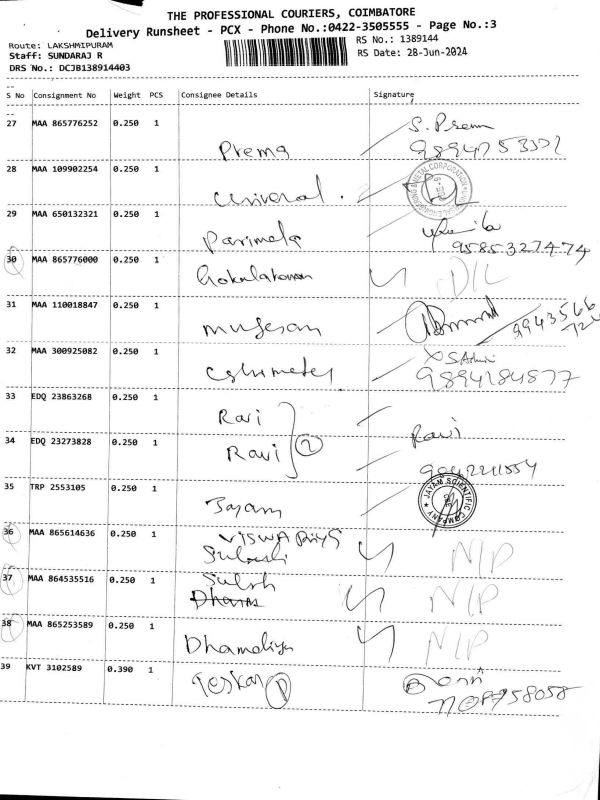 THE PROFESSIONAL COURIERS, COIMBATORE
Delivery Runsheet - PCX - Phone No.:0422-3505555 - Page No.:3
Route: LAKSHMIPURAM
RS No.: 1389144
Staff: SUNDARAJ R
RS Date: 28-Jun-2024
DRS No.: DCJB138914403
S No Consignment No Weight PCS Consignee Details Signature
27 MAA 865776252 0.250 1 Prema S. Prem
28 MAA 109902254 0.250 1 Universal
29 MAA 650132321 0.250 1 Parimala
9585327474
30 MAA 865776000 0.250 1 D/L
31 MAA 110018847 0.250 1 Murugesan
32 MAA 300925082 0.250 1
9894184877
33 EDQ 23863268 0.250 1 Ravi
34 EDQ 23273828 0.250 1 Ravi 2 Ravi
35 TRP 2553105 0.250 1 Jayam JAYAM SCIENTIFIC COMPANY
36 MAA 865614636 0.250 1 VISWA Priya N/P
37 MAA 864535516 0.250 1 N/P
38 MAA 865253589 0.250 1 N/P
39 KVT 3102589 0.390 1